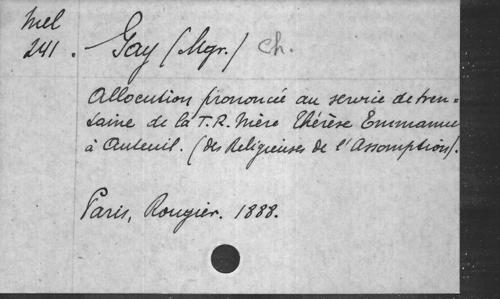 Mel
241.
Gay (Mgr.) Ch.
Allocution prononcée au servie de tren-
taine de la T. R. Mère Thérèse Emmanue
à Auteuil. (des Religieuses de l'Assomption).
Paris, Rougier. 1888.